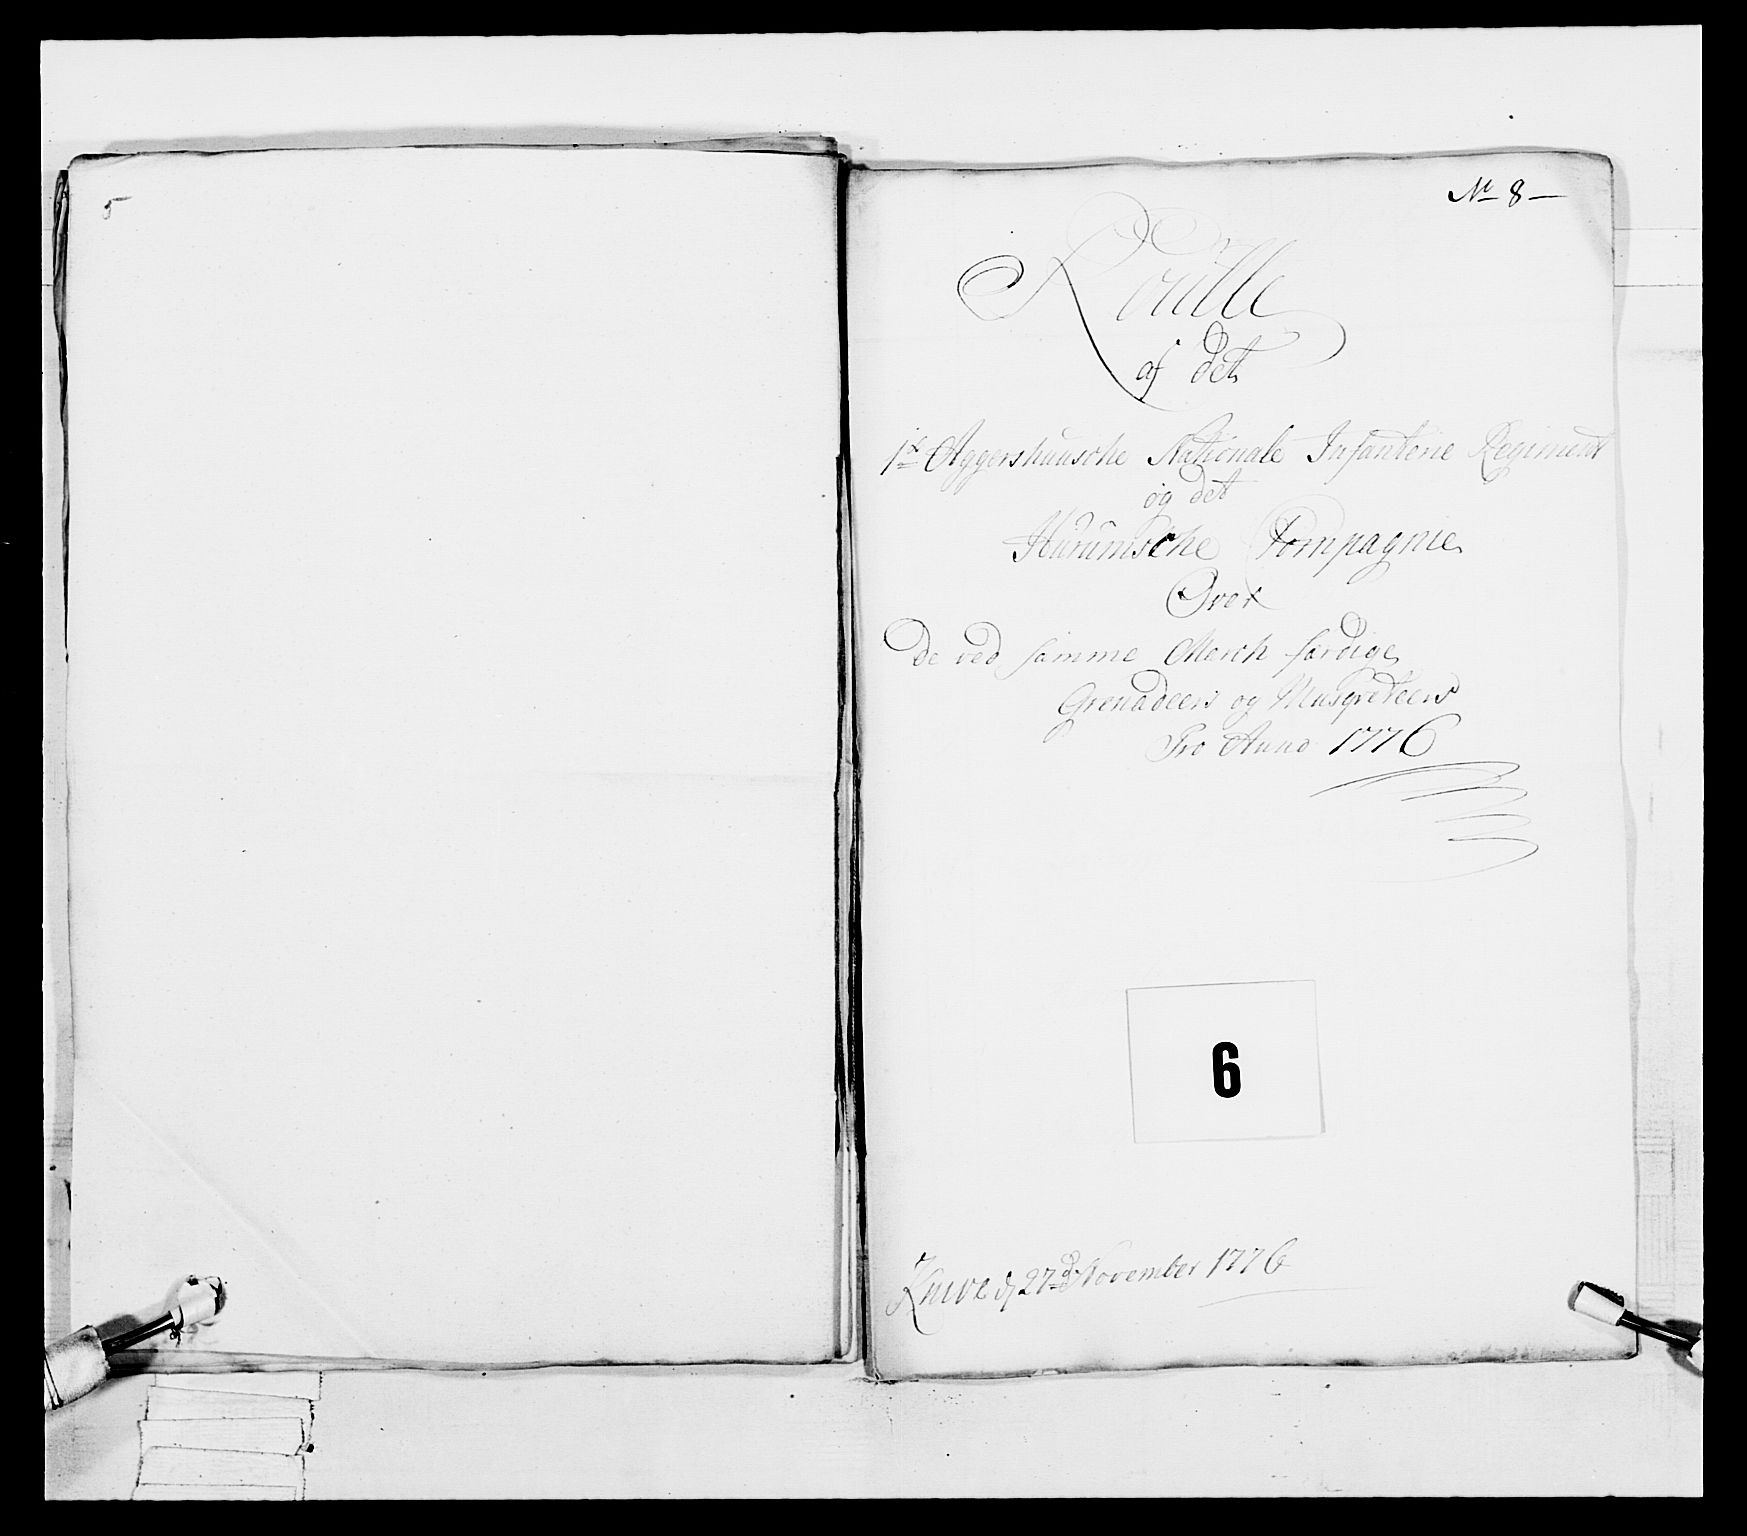 5
No 8
Roulle
af det
1te Aggershuusche Nationale Infanterie Regiment
og det
Hurumsche Compagnie
Over
De ved samme March færdige
Grenadeers og Musqveteers
Pro Anno 1776
6
d 27de November 1776